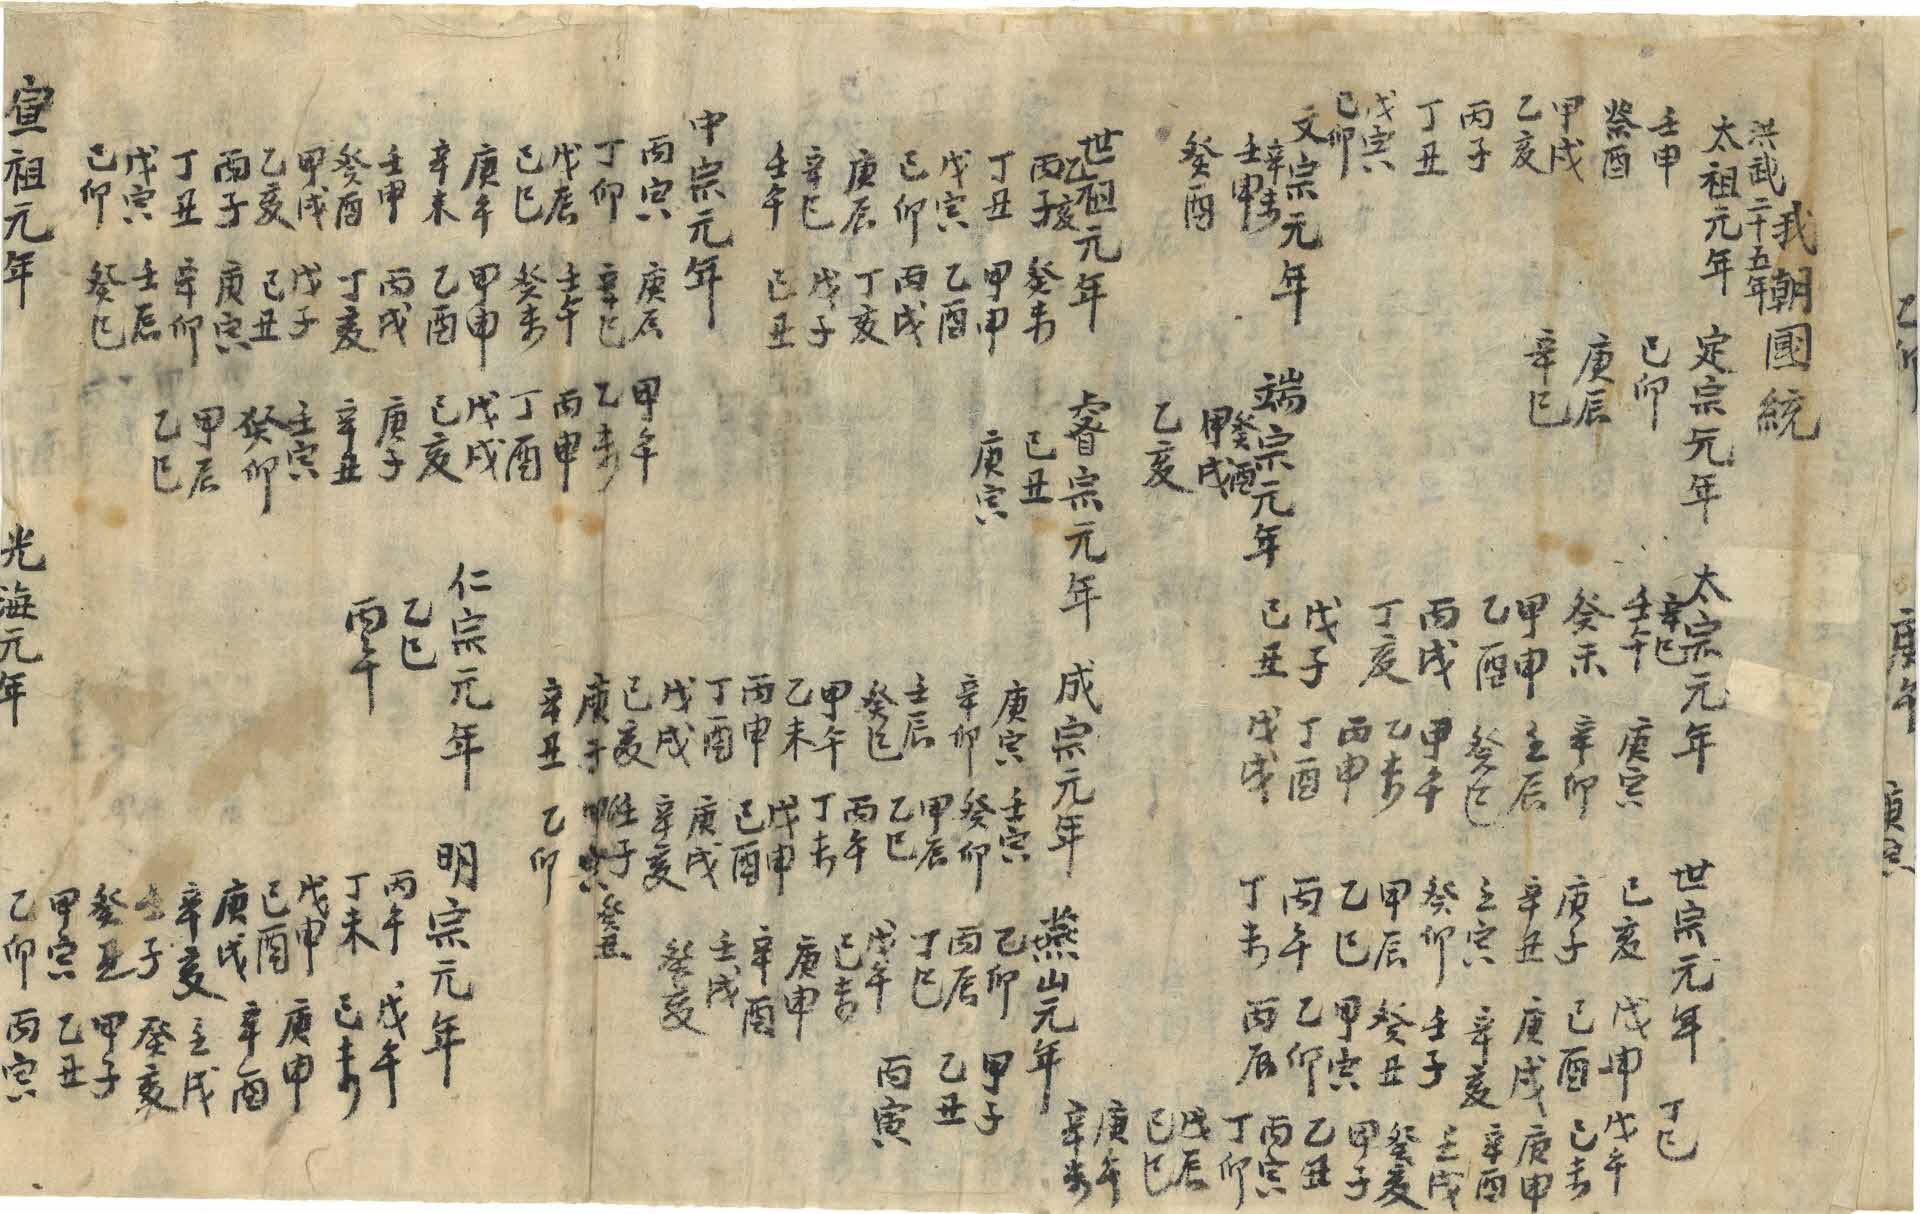 乙卯
庚午
我朝國統
洪武二十五年
太祖元年
壬申 癸酉 甲戌 乙亥 丙子 丁丑 戊寅 己卯
定宗元年
己卯 庚辰 辛巳
太宗元年
辛巳 壬午 癸未 甲申 乙酉 丙戌 丁亥 戊子 己丑
庚寅 辛卯 壬辰 癸巳 甲午 乙未 丙申 丁酉 戊戌
世宗元年
己亥 庚子 辛丑 壬寅 癸卯 甲辰 乙巳 丙午 丁未
戊申 己酉 庚戌 辛亥 壬子 癸丑 甲寅 乙卯 丙辰
丁巳 戊午 己未 庚申 辛酉 壬戌 癸亥 甲子 乙丑 丙寅 丁卯 戊辰 己巳 庚午 辛未
文宗元年
辛未 壬申 癸酉
端宗元年
癸酉 甲戌 乙亥
世祖元年
乙亥 丙子 丁丑 戊寅 己卯 庚辰 辛巳 壬午
癸未 甲申 乙酉 丙戌 丁亥 戊子 己丑
睿宗元年
己丑 庚寅
成宗元年
庚寅 辛卯 壬辰 癸巳 甲午 乙未 丙申 丁酉 戊戌 己亥 庚子 辛丑
壬寅 癸卯 甲辰 乙巳 丙午 丁未 戊申 己酉 庚戌 辛亥 壬子 癸丑 甲寅 乙卯
燕山元年
乙卯 丙辰 丁巳 戊午 己未 庚申 辛酉 壬戌 癸亥
甲子 乙丑 丙寅
中宗元年
丙寅 丁卯 戊辰 己巳 庚午 辛未 壬申 癸酉 甲戌 乙亥 丙子 丁丑 戊寅 己卯
庚辰 辛巳 壬午 癸未 甲申 乙酉 丙戌 丁亥 戊子 己丑 庚寅 辛卯 壬辰 癸巳
甲午 乙未 丙申 丁酉 戊戌 己亥 庚子 辛丑 壬寅 癸卯 甲辰 乙巳
仁宗元年
乙巳 丙午
明宗元年
丙午 丁未 戊申 己酉 庚戌 辛亥 壬子 癸丑 甲寅 乙卯
戊午 己未 庚申 辛酉 壬戌 癸亥 甲子 乙丑 丙寅
宣祖元年
光海元年